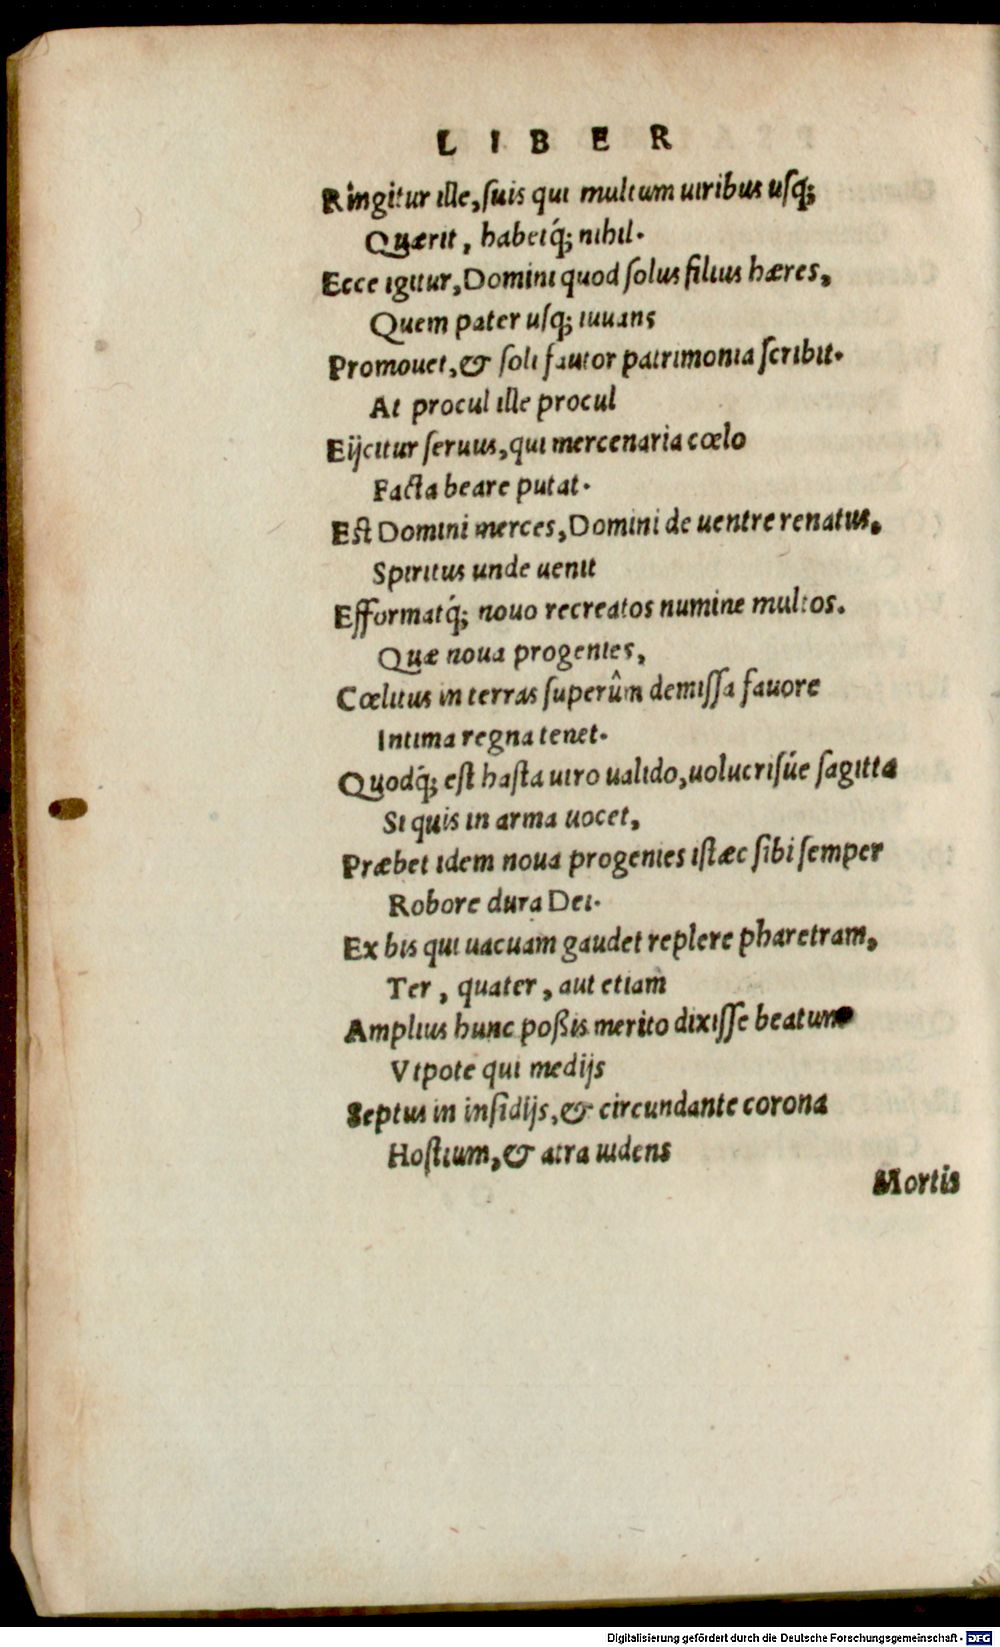 LIBER
Ringitur ille, ſuis qui multum uiribus uſq́;
Quærit, habetq́; nihil.
Ecce igitur, Domini quod ſolus filius hæres,
Quem pater uſq; iuuans
Promouet, & ſoli fautor patrimonia ſcribit.
At procul ille procul
Eijcitur ſeruus, qui mercenaria cœlo
Facta beare putat.
Eſt Domini merces, Domini de uentre renatus,
Spiritus unde uenit
Efformatq́; nouo recreatos numine multos.
Quæ noua progenies,
Cœlitus in terras ſuperûm demiſſa fauore
Intima regna tenet.
Quodq́; eſt haſta uiro ualido, uolucriſúe ſagitta
Si quis in arma uocet,
Præbet idem noua progenies iſtæc ſibi ſemper
Robore dura Dei.
Ex his qui uacuam gaudet replere pharetram,
Ter, quater, aut etiam
Amplius hunc poßis merito dixiſſe beatum
Vtpote qui medijs
Septus in inſidijs, & circundante corona
Hoſtium, & atra uidens
Mortis
Digitalisierung gefördert durch die Deutsche Forschungsgemeinschaft - DFG